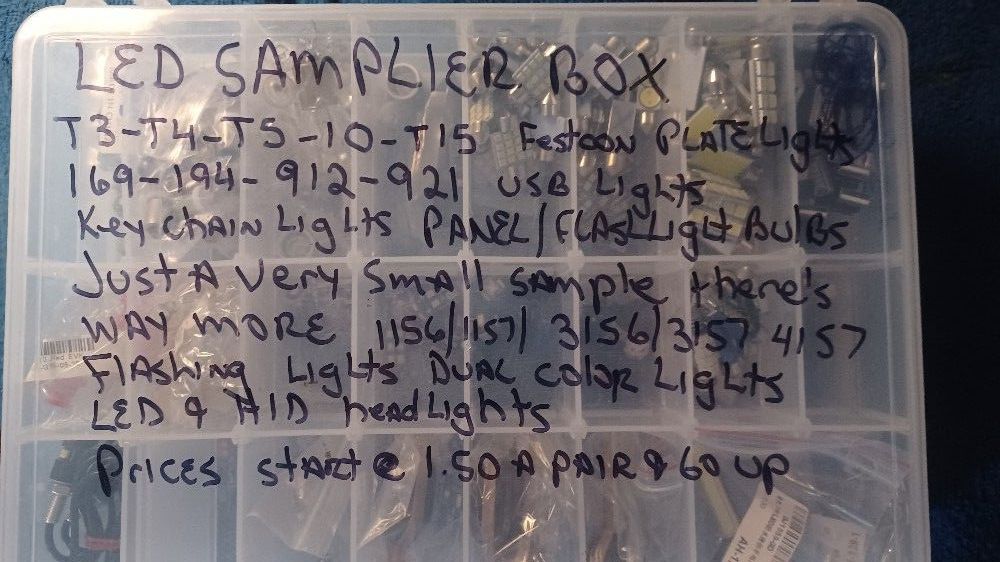 LED SAMPLIER BOX
T3-T4-T5-10-T15 Festoon PLATE Lights
169-194-912-921 USB Lights
Key chain Lights PANEL/FLASHLight BulBs
Just A very small sample there's
WAY MORE 1156/1157/ 3156/3157 4157
Flashing Lights Dual color Lights
LED & HID headLights
Prices start @ 1.50 A PAIR & GO UP